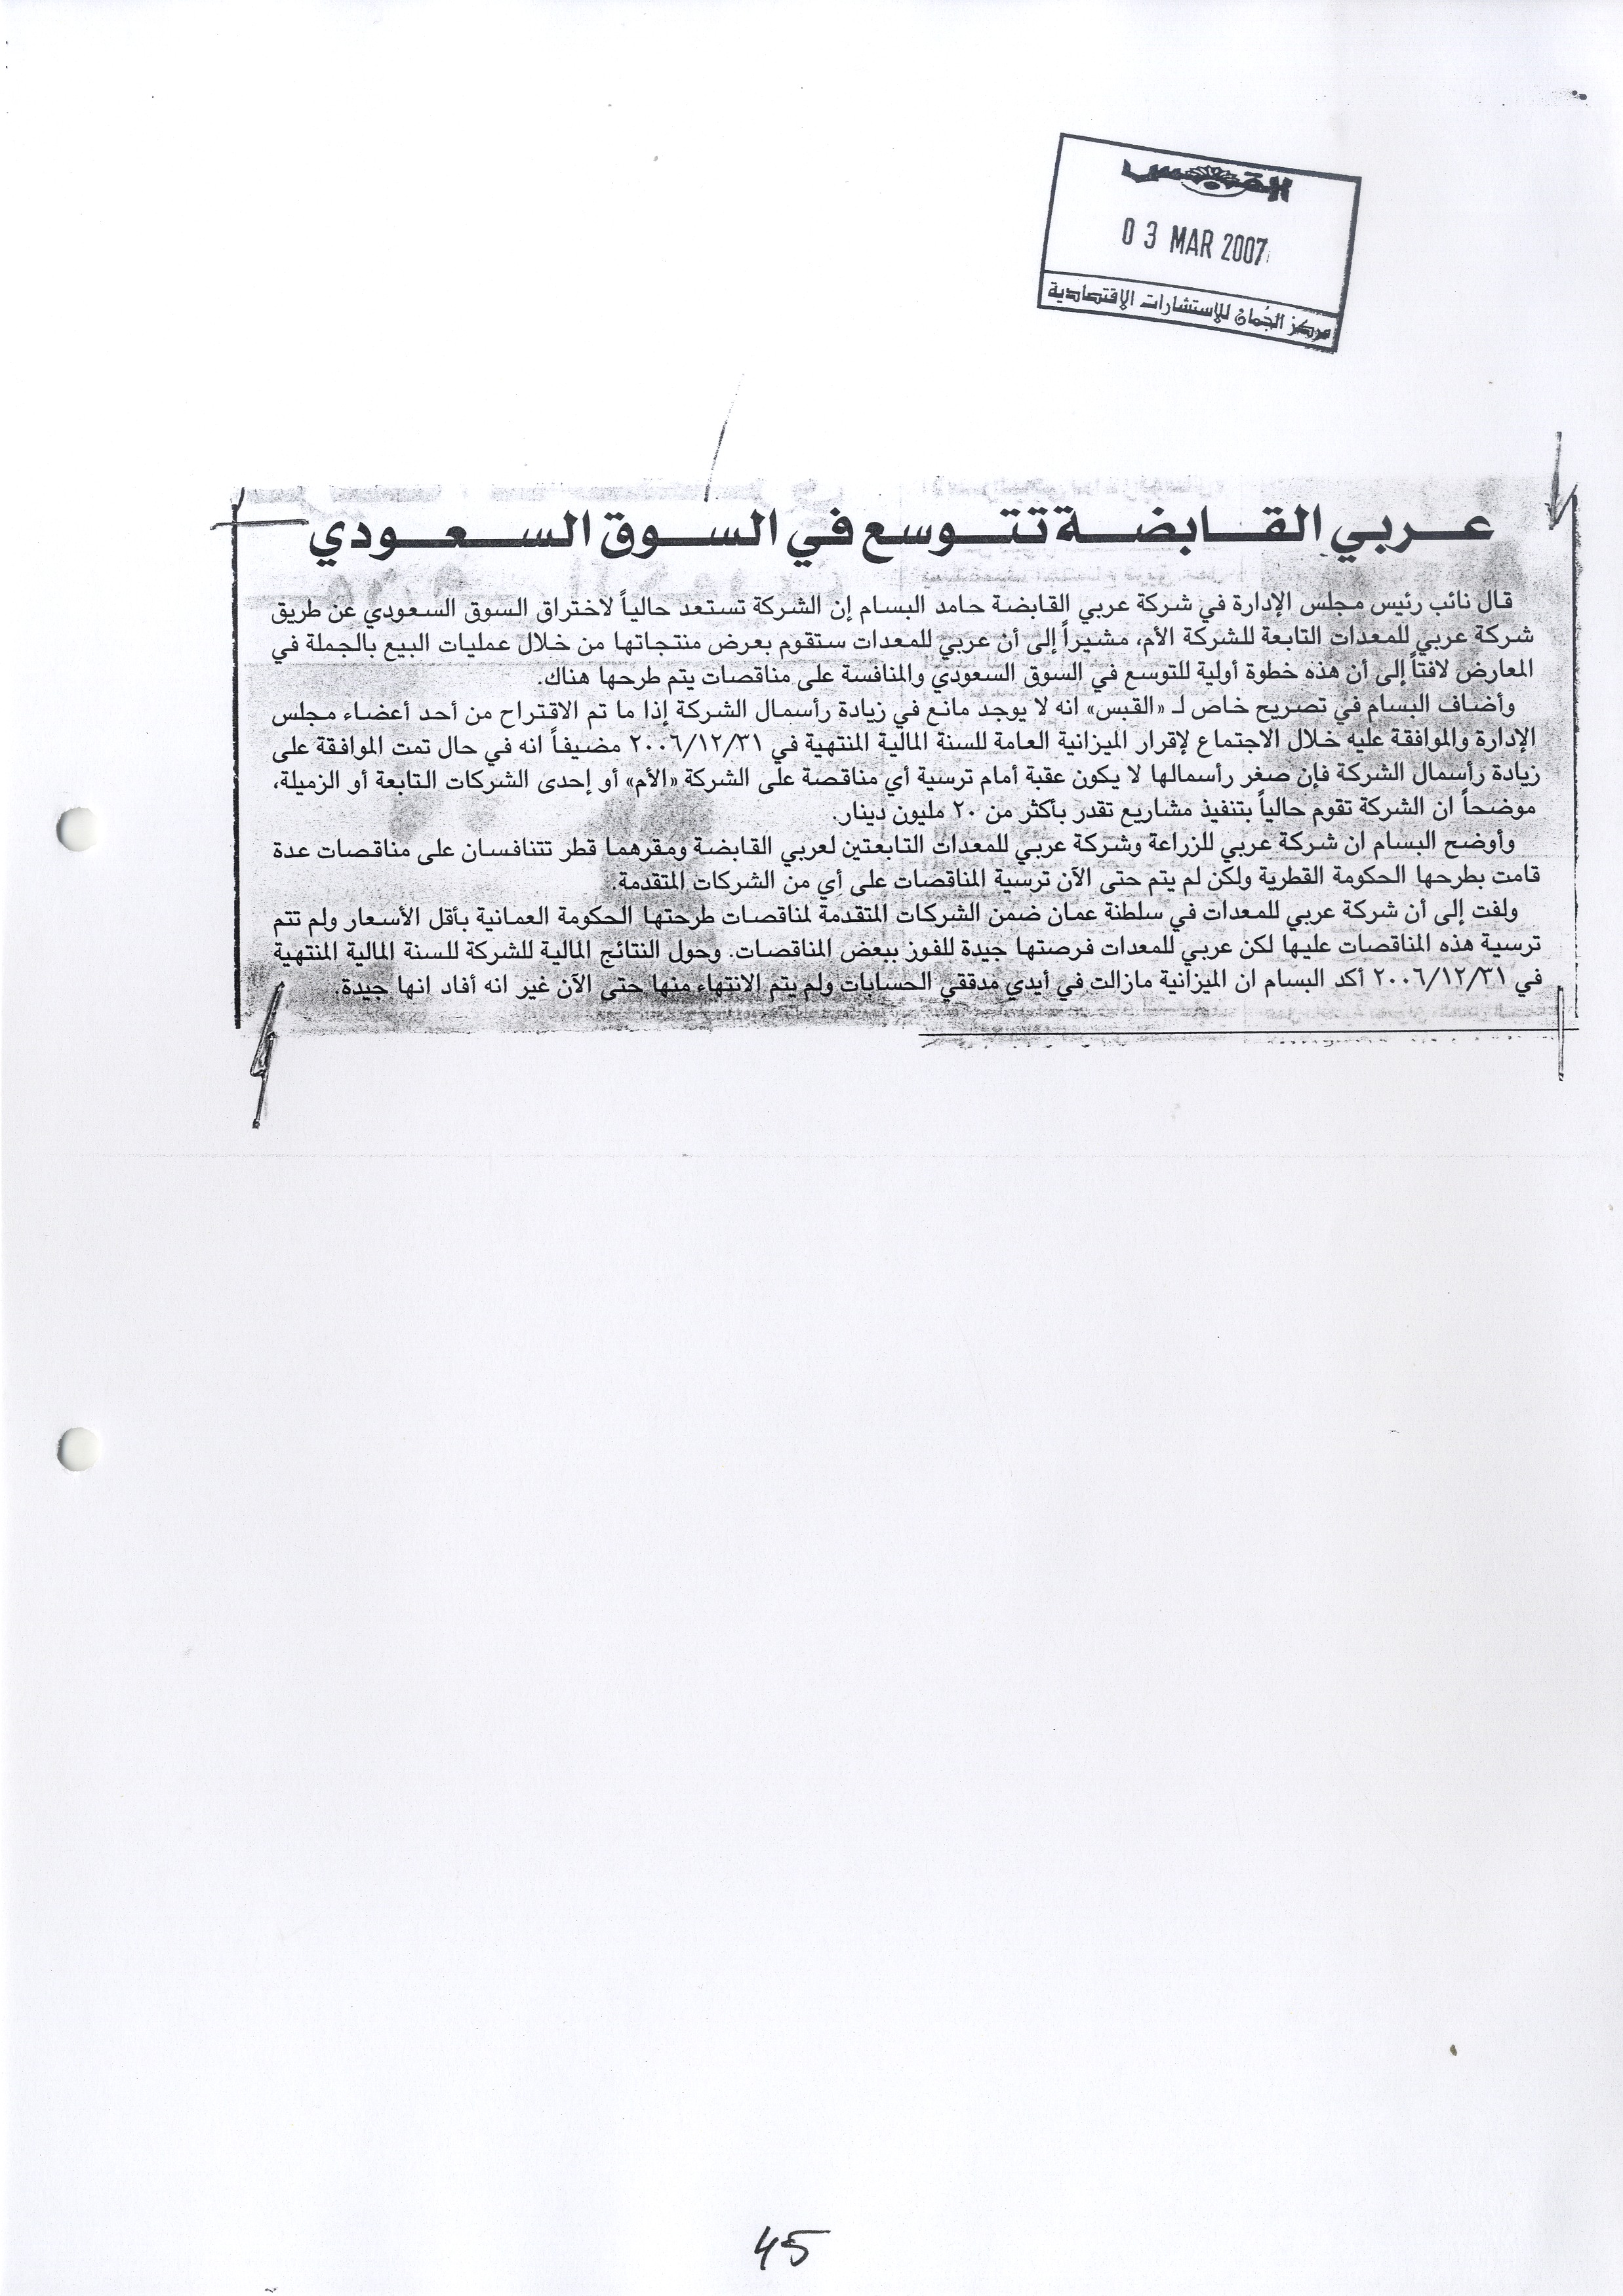 القبس
03 MAR 2007
مركز الجُمان للإستشارات الإقتصادية
عربي القابضة تتوسع في السوق السعودي
قال نائب رئيس مجلس الإدارة في شركة عربي القابضة حامد البسام إن الشركة تستعد حالياً لاختراق السوق السعودي عن طريق
شركة عربي للمعدات التابعة للشركة الأم، مشيراً إلى أن عربي للمعدات ستقوم بعرض منتجاتها من خلال عمليات البيع بالجملة في
المعارض لافتاً إلى أن هذه خطوة أولية للتوسع في السوق السعودي والمنافسة على مناقصات يتم طرحها هناك.
وأضاف البسام في تصريح خاص لـ «القبس» انه لا يوجد مانع في زيادة رأسمال الشركة إذا ما تم الاقتراح من أحد أعضاء مجلس
الإدارة والموافقة عليه خلال الاجتماع لإقرار الميزانية العامة للسنة المالية المنتهية في ٢٠٠٦/١٢/٣١ مضيفاً انه في حال تمت الموافقة على
زيادة رأسمال الشركة فإن صغر رأسمالها لا يكون عقبة أمام ترسية أي مناقصة على الشركة «الأم» أو إحدى الشركات التابعة أو الزميلة،
موضحاً ان الشركة تقوم حالياً بتنفيذ مشاريع تقدر بأكثر من ٢٠ مليون دينار.
وأوضح البسام ان شركة عربي للزراعة وشركة عربي للمعدات التابعتين لعربي القابضة ومقرهما قطر تتنافسان على مناقصات عدة
قامت بطرحها الحكومة القطرية ولكن لم يتم حتى الآن ترسية المناقصات على أي من الشركات المتقدمة.
ولفت إلى أن شركة عربي للمعدات في سلطنة عمان ضمن الشركات المتقدمة لمناقصات طرحتها الحكومة العمانية بأقل الأسعار ولم تتم
ترسية هذه المناقصات عليها لكن عربي للمعدات فرصتها جيدة للفوز ببعض المناقصات. وحول النتائج المالية للشركة للسنة المالية المنتهية
في ٢٠٠٦/١٢/٣١ أكد البسام ان الميزانية مازالت في أيدي مدققي الحسابات ولم يتم الانتهاء منها حتى الآن غير انه أفاد انها جيدة.
45